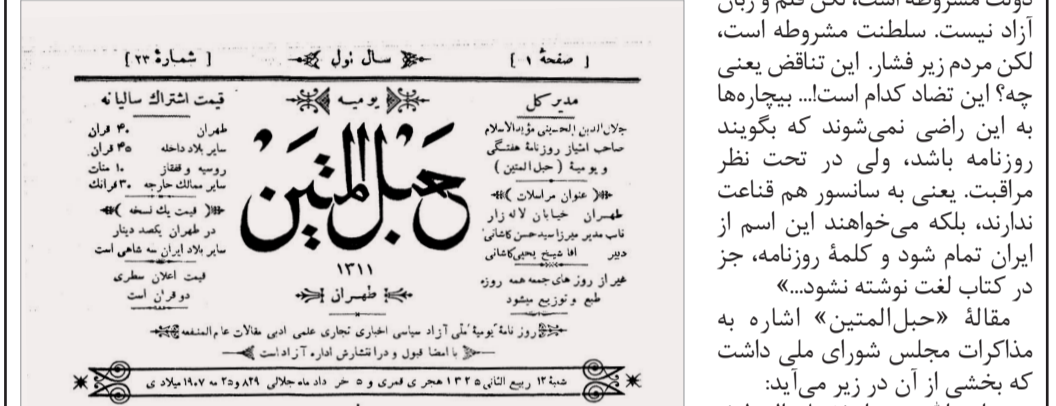 دولت مشروطه است، لکن قلم و زبان
آزاد نیست. سلطنت مشروطه است،
لکن مردم زیر فشار. این تناقض یعنی
چه؟ این تضاد کدام است!... بیچاره‌ها
به این راضی نمی‌شوند که بگویند
روزنامه باشد، ولی در تحت نظر
مراقبت. یعنی به سانسور هم قناعت
ندارند، بلکه می‌خواهند این اسم از
ایران تمام شود و کلمهٔ روزنامه، جز
در کتاب لغت نوشته نشود...»
مقالهٔ «حبل‌المتین» اشاره به
مذاکرات مجلس شورای ملی داشت
که بخشی از آن در زیر می‌آید:
[ صفحهٔ ۱ ]
سال اول
[ شمارهٔ ۲۳ ]
مدیر کل
جلال‌الدین الحسینی مؤیدالاسلام
صاحب امتیاز روزنامهٔ هفتگی
و یومیهٔ ( حبل المتین )
( عنوان مراسلات )
طهران خیابان لاله زار
نائب مدیر میرزا سید حسن کاشانی
دبیر آقا شیخ یحیی کاشانی
غیر از روز های جمعه همه روزه
طبع و توزیع میشود
یومیه
حبل المتین
۱۳۱۱
طهران
قیمت اشتراك سالیانه
طهران ۴۰ قران
سایر بلاد داخله ۴۵ قران
روسیه و قفقاز ۱۰ منات
سایر ممالک خارجه ۳۰ فرانك
( قیمت یك نسخه )
در طهران یکصد دینار
سایر بلاد ایران سه شاهی است
قیمت اعلان سطری
دو قران است
روز نامهٔ یومیهٔ ملی آزاد سیاسی اخباری تجاری علمی ادبی مقالات عام المنفعه
با امضا قبول و در انتشارش اداره آزاد است
شنبهٔ ۱۲ ربیع الثانی ۱۳۲۵ هجری قمری و ۵ خرداد ماه جلالی ۸۲۹ و ۲۵ مه ۱۹۰۷ میلادی